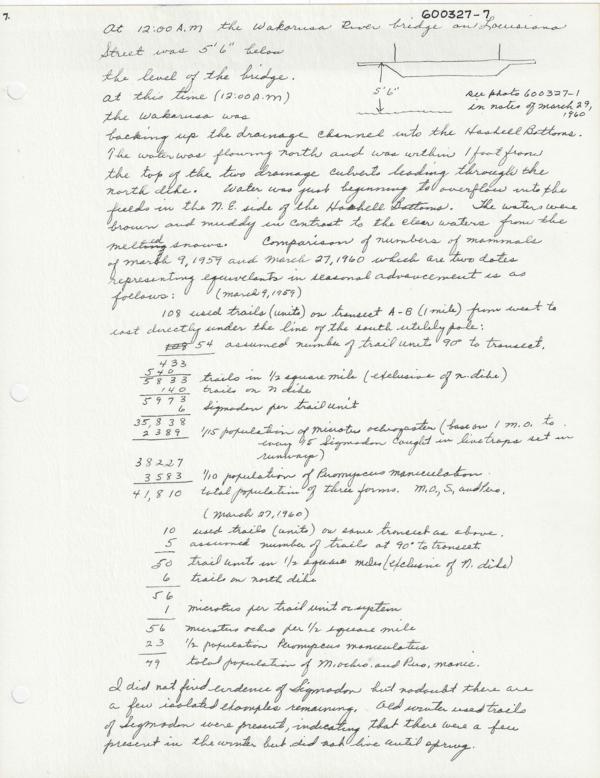 7.
600327-7
At 12:00 A.M the Wakarusa River bridge on Louisiana
Street was 5'6" below
the level of the bridge.
At this time (12:00 A.M)
the Wakarusa was
5'6"
see photo 600327-1
in notes of March 29,
1960
backing up the drainage channel into the Haskell Bottoms.
The water was flowing north and was within 1 foot from
the top of the two drainage culverts leading through the
north dike. Water was just beginning to overflow into the
fields in the N.E. side of the Haskell Bottoms. The waters were
brown and muddy in contrast to the clear waters from the
melted snows. Comparison of numbers of mammals
of March 9, 1959 and March 27, 1960 which are two dates
representing equivelants in seasonal advancement is as
follows: (March 9, 1959)
108 used trails (units) on transect A-B (1 mile) from west to
east directly under the line of the south utility pole:
108 54 assumed number of trail units 90° to transect.
433
540
5833 trails in 1/2 square mile (exclusive of n. dike)
140 trails on N dike
5973
6 Sigmodon per trail unit
35,838
2389 1/15 population of Microtus ochrogaster (base on 1 M.O. to
every 15 Sigmodon caught in live traps set in
runways)
38227
3583 1/10 population of Peromyscus maniculatus.
41,810 total population of three forms. M.O., S, and Pero.
(March 27, 1960)
10 used trails (units) on same transect as above.
5 assumed number of trails at 90° to transect.
50 trail units in 1/2 square miles (exclusive of N. dike)
6 trails on north dike
56
1 microtus per trail unit or system
56 microtus ochro per 1/2 square mile
23 1/2 population Peromyscus maniculatus
79 total population of M. ochro. and Pero. manic.
I did not find evidence of Sigmodon but no doubt there are
a few isolated examples remaining. Old winter used trails
of Sigmodon were present, indicating that there were a few
present in the winter but did not live until spring.